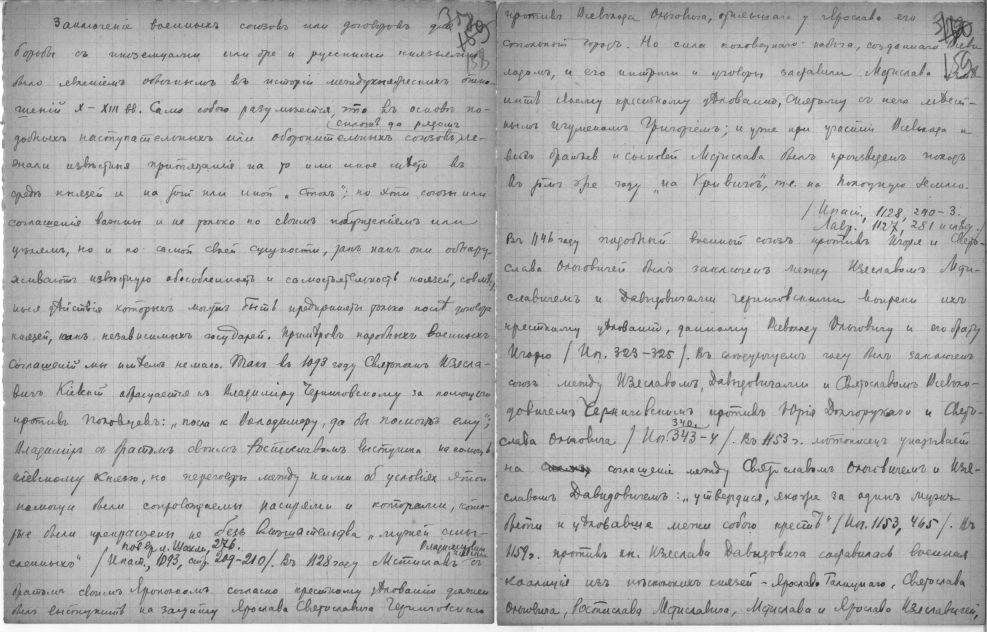 Заключенiе военныхъ союзовъ или договоровъ для
борьбы съ иноземцами или же и русскими князьями
было явленiемъ обычнымъ въ исторiи междукняжескихъ отно-
шенiй X–XIII вв. Само собою разумѣется, что въ основѣ по-
добныхъ наступательныхъ или оборонительныхъ союзовъ ле-
жали извѣстныя притязанiя на то или иное мѣсто въ
средѣ князей и на тотъ или иной „столъ"; но эти союзы или
соглашенiя военны и не только по своимъ побужденiямъ или
цѣлямъ, но и по самой своей сущности, такъ какъ они обнару-
живаютъ извѣстную обособленность и самостоятельность князей, совмѣст-
ныя дѣйствiя которыхъ могутъ быть предприняты только послѣ договора
князей, какъ независимыхъ государей. Примѣровъ подобныхъ военныхъ
соглашенiй мы имѣемъ немало. Такъ въ 1093 году Святополкъ Изясла-
вичъ Кiевскiй обращается къ Владимiру Черниговскому за помощью
противъ половцевъ: „посла к Володимеру, да бы помоглъ ему";
Владимiръ съ братомъ своимъ Ростиславомъ выступилъ на помощь
кiевскому князю, но переговоры между ними об условiяхъ этой
помощи были сопровождаемы распрями и которами, кото-
рые были прекращены не безъ вмѣшательства „мужей смы-
сленныхъ" / Ипат., 1093, стр. 209-210 /. Въ 1128 году Мстиславъ Владимiровичъ съ
братомъ своимъ Ярополкомъ согласно крестному цѣлованiю долженъ
былъ выступить на защиту Ярослава Святославича Черниговскаго
159
противъ Всеволода Ольговича, отнявшаго у Ярослава его
стольный городъ. Но сила половецкаго набега, созданнаго Всево-
лодомъ, и его интриги и уговоры заставили Мстислава
своему крестному цѣлованiю, снятому съ него мѣст-
нымъ игуменомъ Григорiемъ; и уже при участiи Всеволода и
всѣхъ братьев и сыновей Мстислава былъ произведенъ походъ
въ томъ же году „на Кривичѣ", т.е. на Полоцкую землю.
/ Ипат., 1128, 290-3.
Лавр. 1127, 281 и слѣд. /
Въ 1146 году подобный военный союзъ противъ Игоря и Свято-
слава Ольговичей былъ заключенъ между Изяславомъ Мсти-
славичемъ и Давыдовичами черниговскими вопреки ихъ
крестному цѣлованiю, данному Всеволоду Ольговичу и его брату
Игорю / Ип. 323-325 /. Въ слѣдующемъ году былъ заключенъ
союзъ между Изяславомъ, Давыдовичами и Святославомъ Всеволо-
довичемъ Черниговскимъ противъ Юрiя Долгорукаго и Свято-
слава Ольговича / Ип. 343-4 /. Въ 1153 г. лѣтописецъ указываетъ
на соглашенiе между Святославомъ Ольговичемъ и Изя-
славомъ Давыдовичемъ: „утвердися, якоже за одинъ мужь
быти и цѣловавше межи собою крестъ" / Ип. 1153, 465 /. Въ
1159 г. противъ кн. Изяслава Давыдовича составилась военная
коалицiя изъ нѣсколькихъ князей – Ярослава Галицкаго, Святослава
Ольговича, Ростислава Мстиславича, Мстислава и Ярослава Изяславичей,